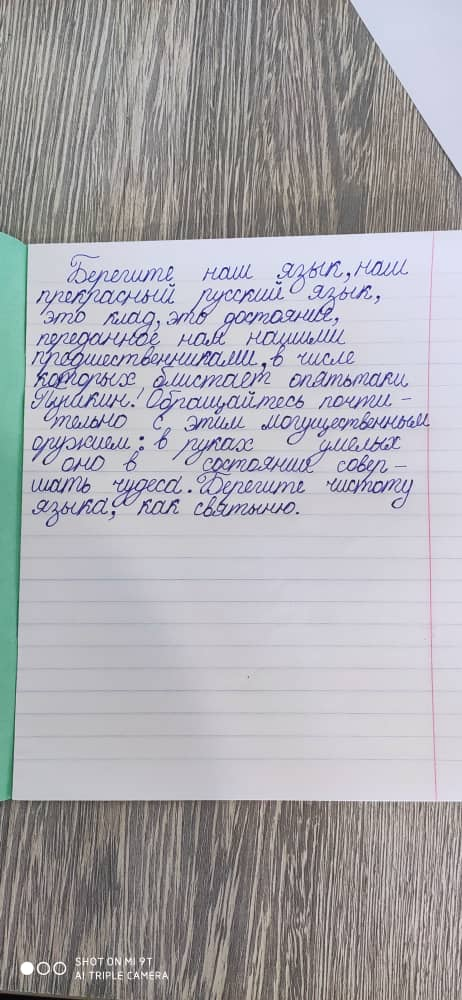 Берегите наш язык, наш
прекрасный русский язык,
это клад, это достояние,
переданное нам нашими
предшественниками, в числе
которых блистает опятьтаки
Пушкин! Обращайтесь почти-
тельно с этим могущественным
оружием: в руках умелых
оно в состоянии совер-
шать чудеса. Берегите чистоту
языка, как святыню.
SHOT ON MI 9T
AI TRIPLE CAMERA